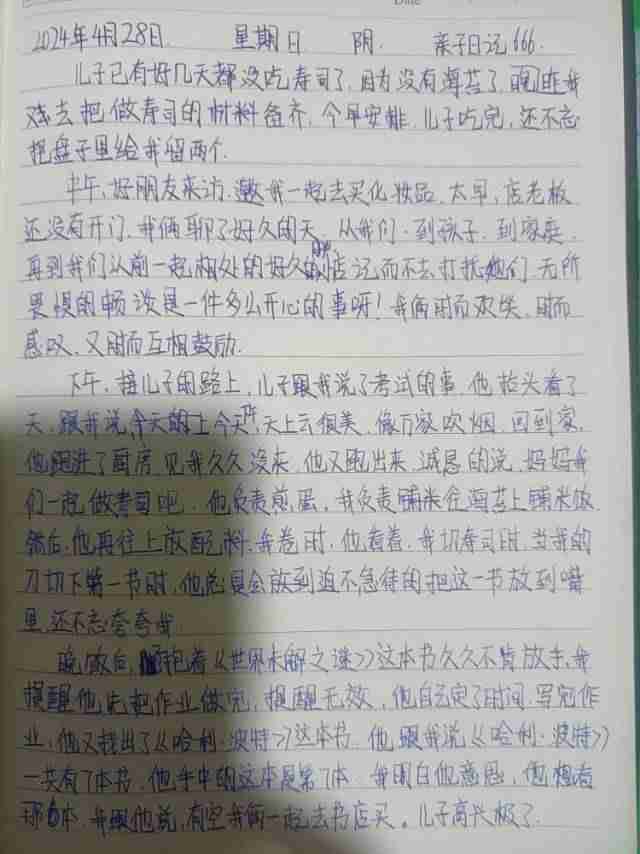 Date
2024年4月28日 星期日 阴 亲子日记666.
儿子已有好几天都没吃寿司了,因为没有海苔了,昨我
戏去把做寿司的材料备齐,今早安排,儿子吃完,还不忘
把盘子里给我留两个.
中午,好朋友来访,邀我一起去买化妆品,太早,店老板
还没有开门,我俩聊了好久的天,从我们,到孩子,到家庭,
再到我们从前一起相处的好久的店记而不去打扰她们,无所
畏惧的畅谈是一件多么开心的事呀!我俩时而欢笑,时而
感叹,又时而互相鼓励.
下午,接儿子的路上,儿子跟我说了考试的事,他抬头看了
天,跟我说,今天的上今天下午,天上云很美,像万家吹烟,回到家,
他跑进了厨房,见我久久没来,他又跑出来,诚恳的说,妈妈我
们一起做寿司吧,他负责煎蛋,我负责铺米往海苔上铺米饭,
然后,他再往上放配料,我卷时,他看着,我切寿司时,当我的
刀切下第一节时,他总是会放到迫不急待的把这一节放到嘴
里,还不忘夸夸我.
晚饭后,抱着《世界未解之谜》这本书久久不肯放手,我
提醒他先把作业做完,提醒无效,他自己定了时间,写完作
业,他又找出了《哈利·波特》这本书,他跟我说《哈利·波特》
一共有7本书,他手中的这本是第7本,我明白他意思,他想看
那6本,我跟他说,有空我俩一起去书店买。儿子高兴极了.